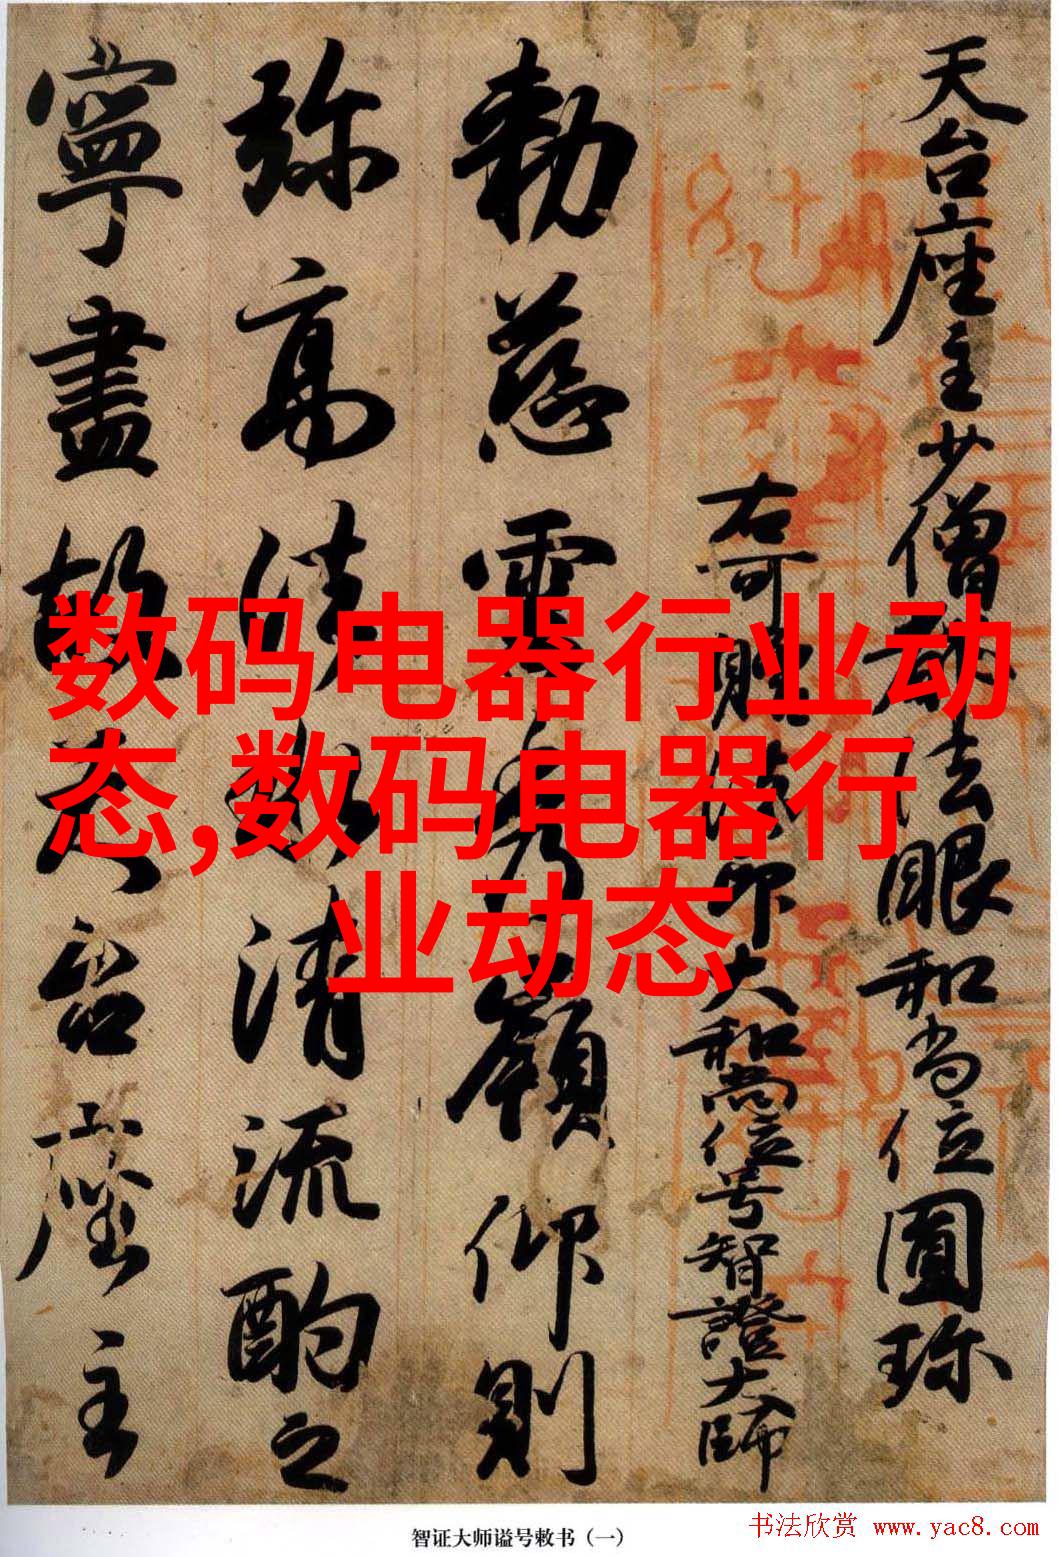 数码电器行业动
态,数码电器行
业动态
天台座主少僧都法眼和尚位圓珎
右可贈法印大和尚位号智證大師
勅慈雲秀嶺仰則
弥高清流酌之
寧盡故天台座主
智证大师谥号敕书（一）
书法欣赏 www.yac8.com